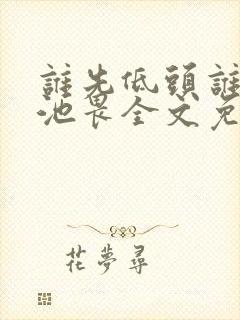 誰先低頭誰
池畏全文免
花夢尋